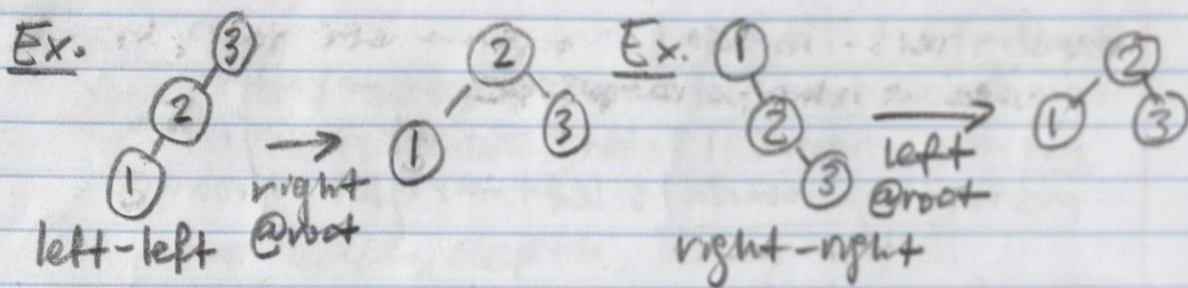 Ex.
3
2
1
left-left
right
@root
2
1
3
Ex.
1
2
3
right-right
left
@root
2
1
3